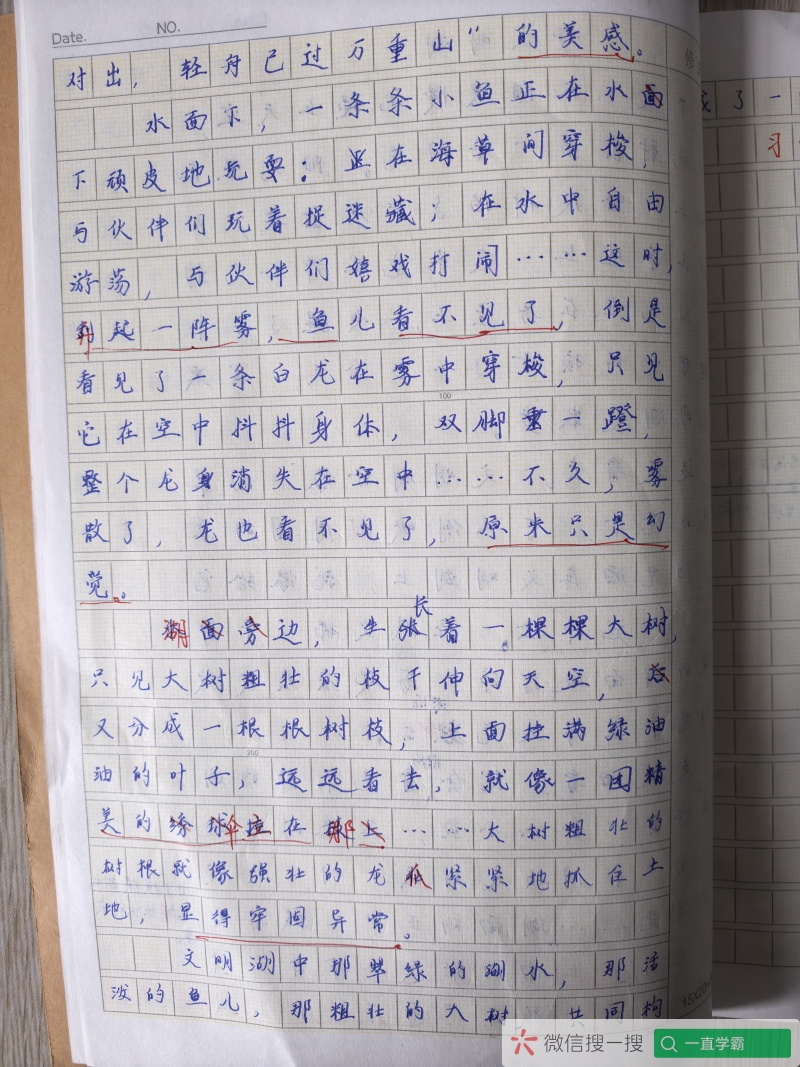 Date. NO.
对出，轻舟已过万重山”的美感。
水面下，一条条小鱼正在水面
下顽皮地玩耍：正在海草间穿梭，
与伙伴们玩着捉迷藏；在水中自由
游荡，与伙伴们嬉戏打闹……这时，
起一阵雾，鱼儿看不见了，倒是
看见了一条白龙在雾中穿梭，只见
100
它在空中抖抖身体，双脚重一蹬，
整个龙身消失在空中……不久，雾
散了，龙也看不见了，原来只是幻
觉。
长
湖面旁边，生张着一棵棵大树，
只见大树粗壮的枝干伸向天空，
又分成一根根树枝，上面挂满绿油
200
油的叶子，远远看去，就像一团精
美的绣球伞拉在那上……大树粗壮的
树根就像强壮的龙爪紧紧地抓住土
地，显得牢固异常。
文明湖中那翠绿的湖水，那活
泼的鱼儿，那粗壮的大树，共同构
15X20
了一
习
微信搜一搜
一直学霸